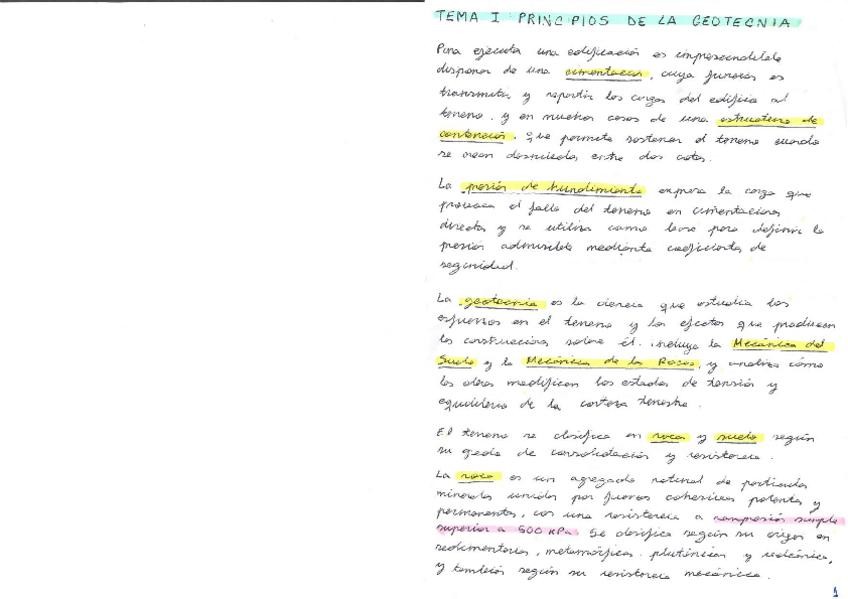 TEMA I PRINCIPIOS DE LA GEOTECNIA
Para ejecutar una edificación es imprescindible
disponer de una cimentación, cuya función es
transmitir y repartir las cargas del edificio al
terreno, y en muchos casos de una estructura de
contención. Que permita sostener el terreno cuando
se crean desniveles entre dos cotas.
La presión de hundimiento expresa la carga que
provoca el fallo del terreno en cimentaciones
directas y se utiliza como base para definir la
presión admisible mediante coeficientes de
seguridad.
La geotecnia es la ciencia que estudia los
esfuerzos en el terreno y los efectos que producen
las construcciones sobre él. incluye la Mecánica del
Suelo y la Mecánica de las Rocas, y analiza cómo
las obras modifican los estados de tensión y
equilibrio de la corteza terrestre.
El terreno se clasifica en roca y suelo según
su grado de consolidación y resistencia.
La roca es un agregado natural de partículas
minerales unidas por fuerzas cohesivas potentes y
permanentes, con una resistencia a compresión simple
superior a 500 KPa. Se clasifica según su origen en
sedimentarias, metamórficas, plutónicas y volcánicas,
y también según su resistencia mecánica.
1